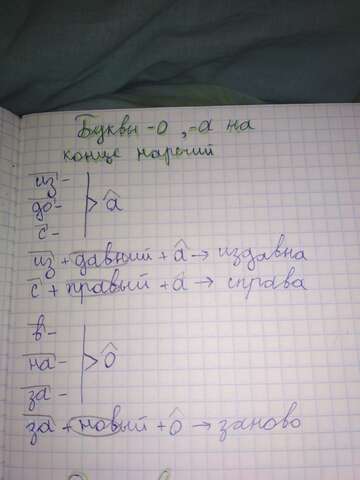 Буквы -о, -а на
конце наречий
из-
до- > а
с-
из + давний + а → издавна
с + правый + а → справа
в-
на- > о
за-
за + новый + о → заново